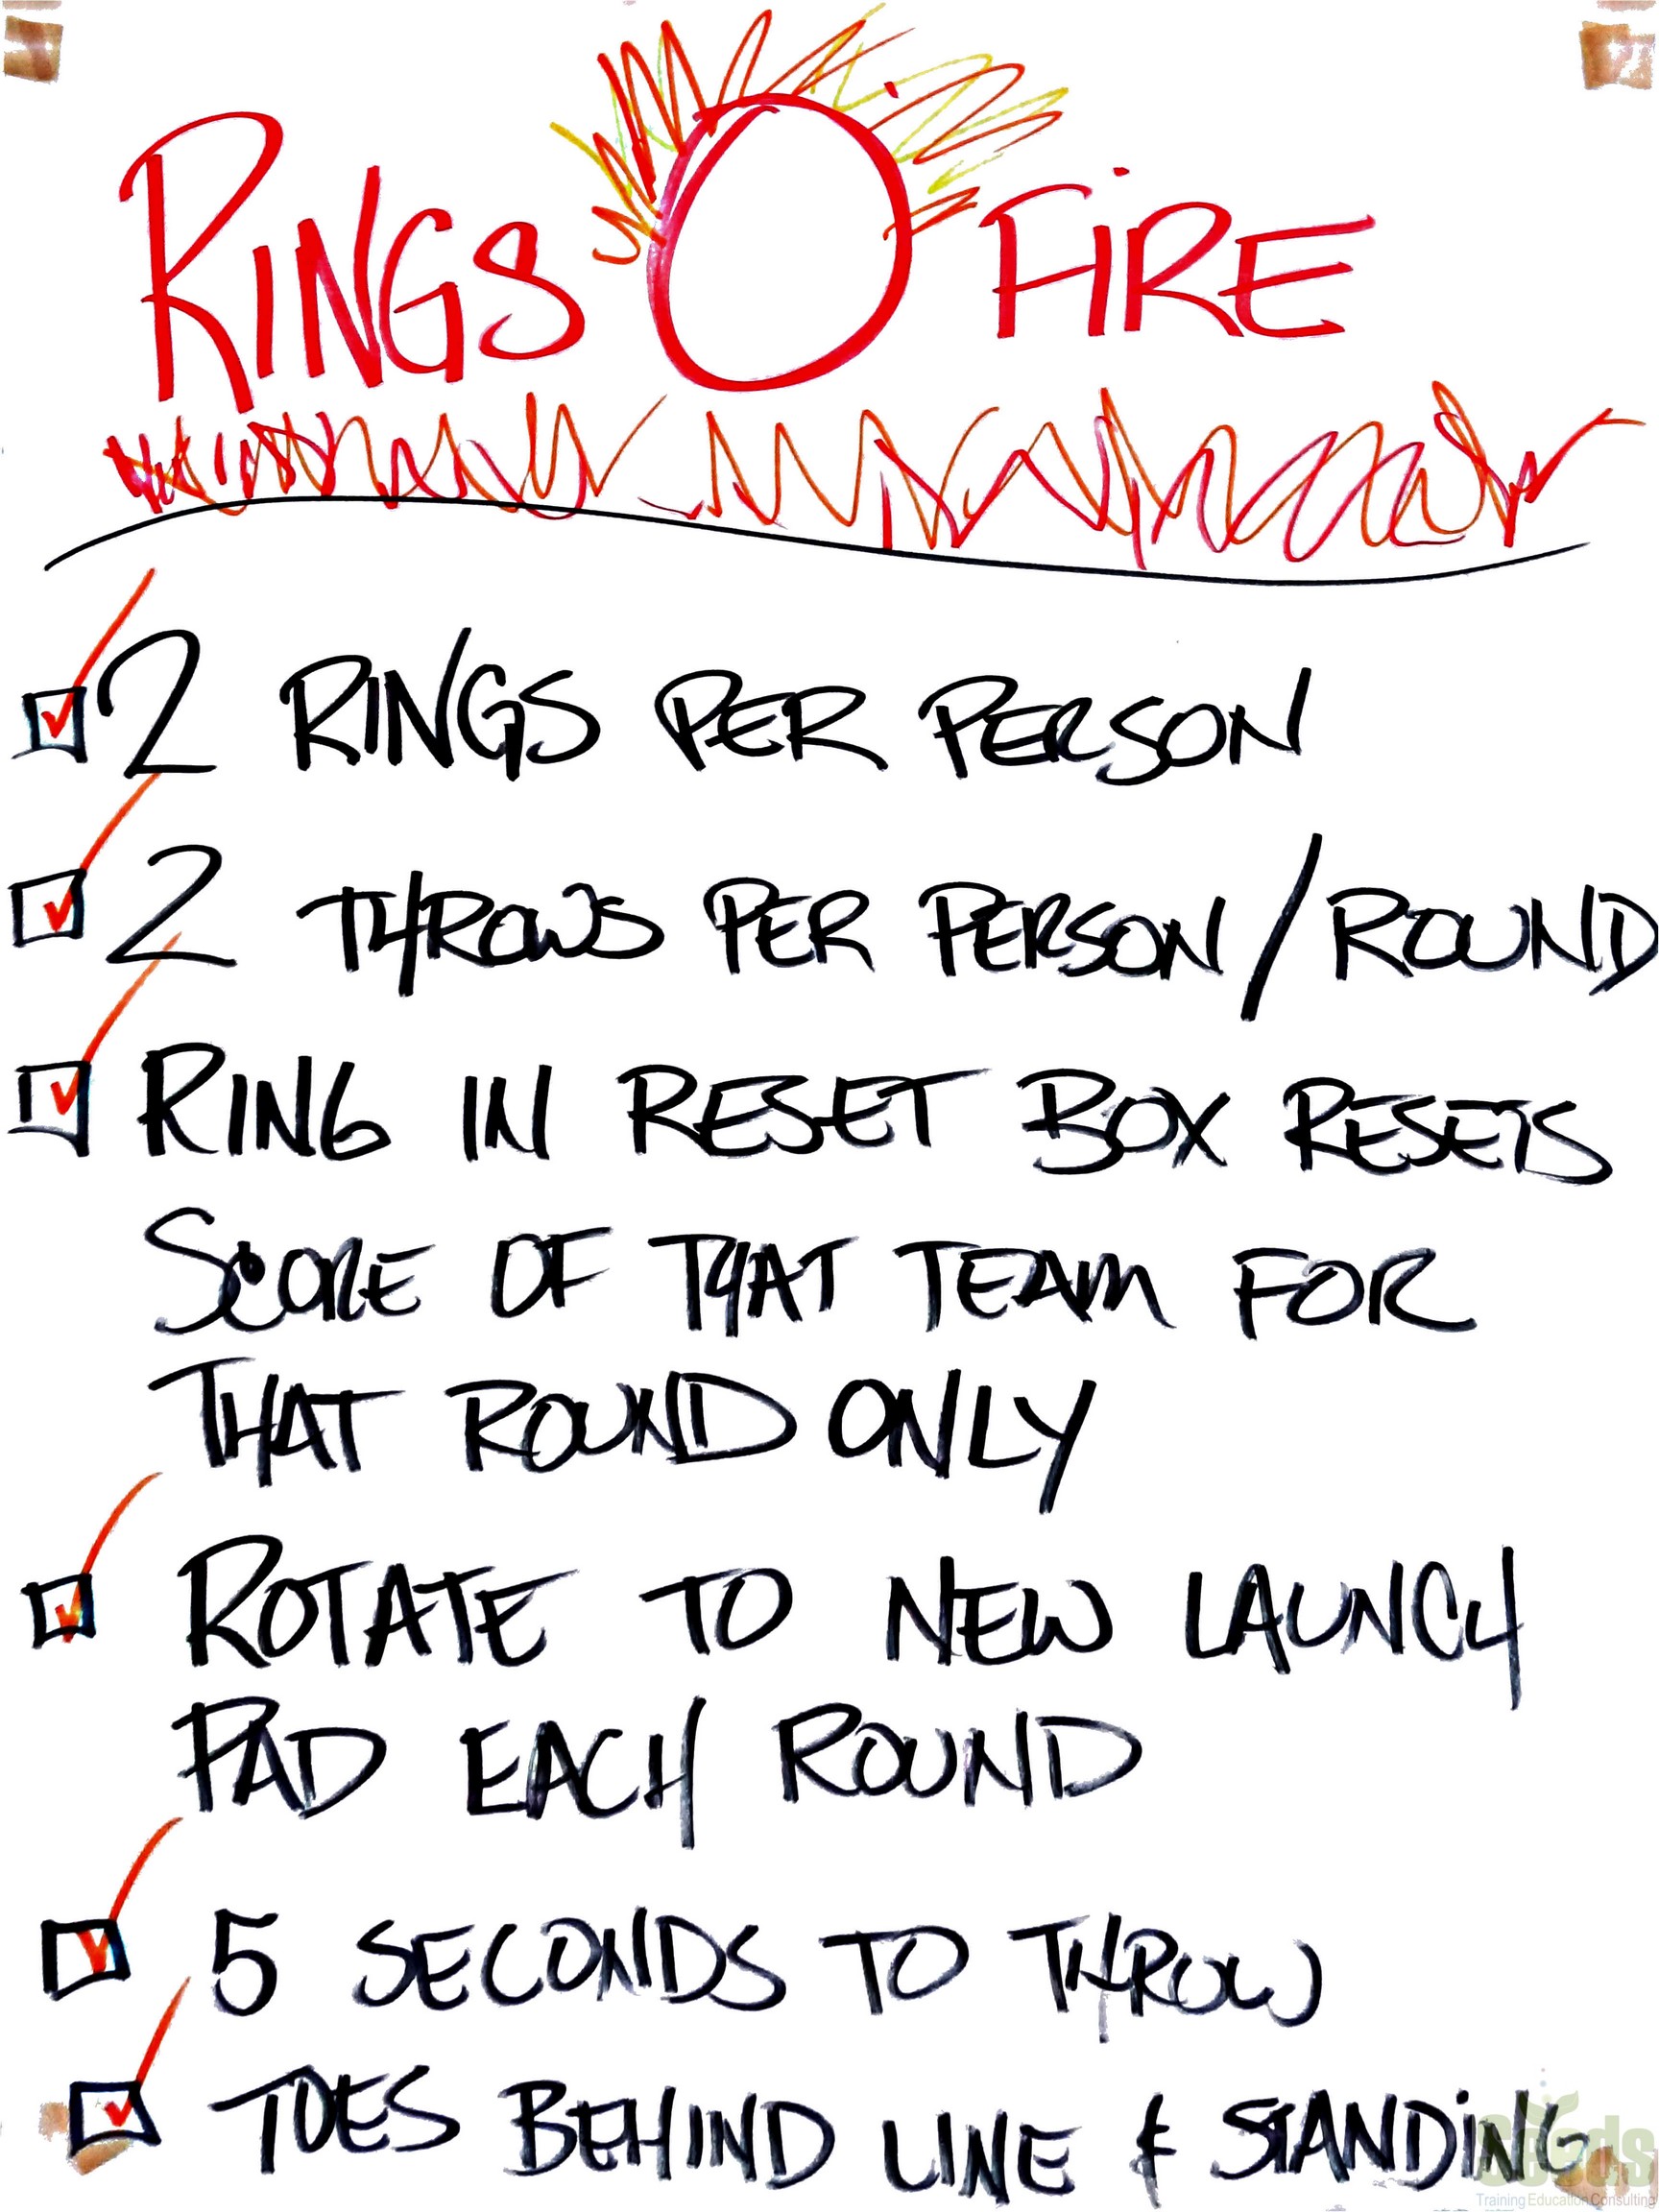 RINGS O FIRE
2 RINGS PER PERSON
2 THROWS PER PERSON/ROUND
RING IN RESET BOX RESETS
SCORE OF THAT TEAM FOR
THAT ROUND ONLY
ROTATE TO NEW LAUNCH
PAD EACH ROUND
5 SECONDS TO THROW
TOES BEHIND LINE & STANDING
Seeds
Training Education Consulting